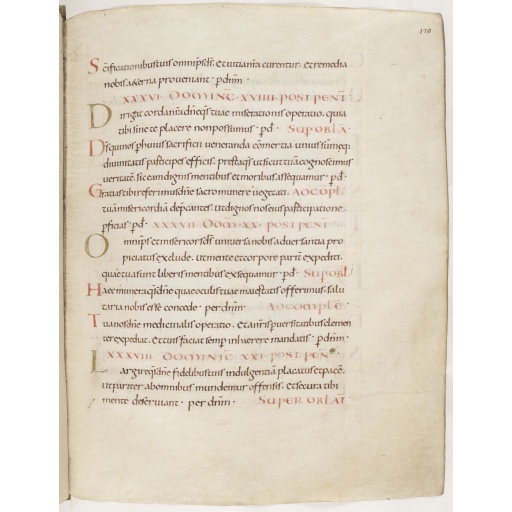 120
Scificationibus tuis omnips ds. et vitia nra curentur. et remedia
nobis aeterna proveniant. p dnm.
XXXVI DOMINC XVIIII POST PENT
Dirigat corda nra dne qs tuae miserationis operatio. quia
tibi sine te placere non possumus. pd. SUP OBLA.
Ds qui nos p huius sacrificii veneranda comertia unius summeq;
divinitatis participes efficis. presta qs ut sicut tuam cognoscimus
veritate. sic eam dignis mentibus et moribus assequamur. pd.
Gratias tibi referimus dne sacro munere vegetati. AD COPL
tuam misericordia depcantes. ut dignos nos eius participatione
pficias. pd. XXXVII DOM XX POST PENT
Omnips et misericors ds universa nobis adversantia pro
pitiatus exclude. ut mente et corpore pariter expediti.
quae tua sunt liberis mentibus exsequamur. pd. SUP OBL
Haec munera qs dne quae oculis tuae maiestatis offerimus. salu
taria nobis esse concede. per dnm. AD COMPLE
Tua nos dne medicinalis operatio. et a nris perversitatibus clemen
ter expediat. et tuis faciat semp inhaerere mandatis. p dnm.
XXXVIII DOMINIC XXI POST PEN
Largire qs dne fidelibus tuis indulgentia placatus et pace.
ut pariter ab omnibus mundentur offensis. et secura tibi
mente deserviant. per dnm. SUPER OBLAT